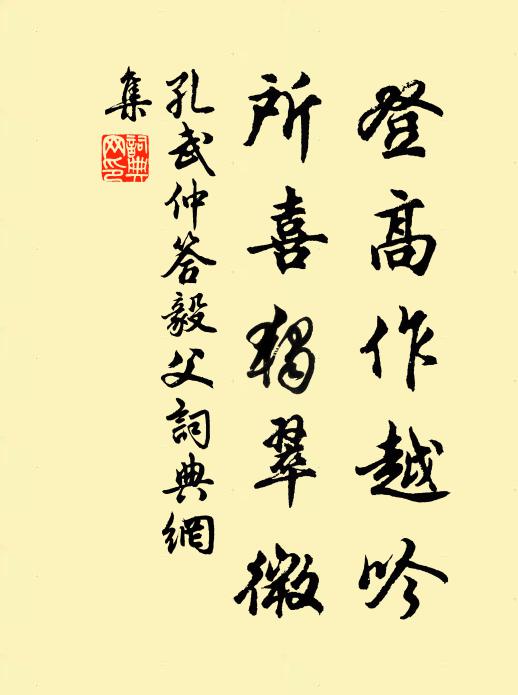 登高作越吟
所喜独翠微
孔武仲答毅父詞典網
集
詞典網印